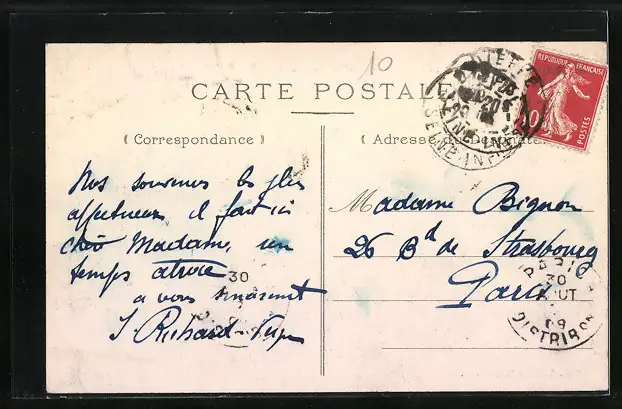 10
CARTE POSTALE
REPUBLIQUE FRANÇAISE
10
POSTES
( Correspondance )
( Adresse
Nos souvenirs les plus
affectueux il fait ici
chère Madame, un
temps atroce
à vous sincèrement
J. Richard-
Madame Bignon
26 Bd de Strasbourg
Paris
30
PARIS
30
AOUT
09
DISTRIBON